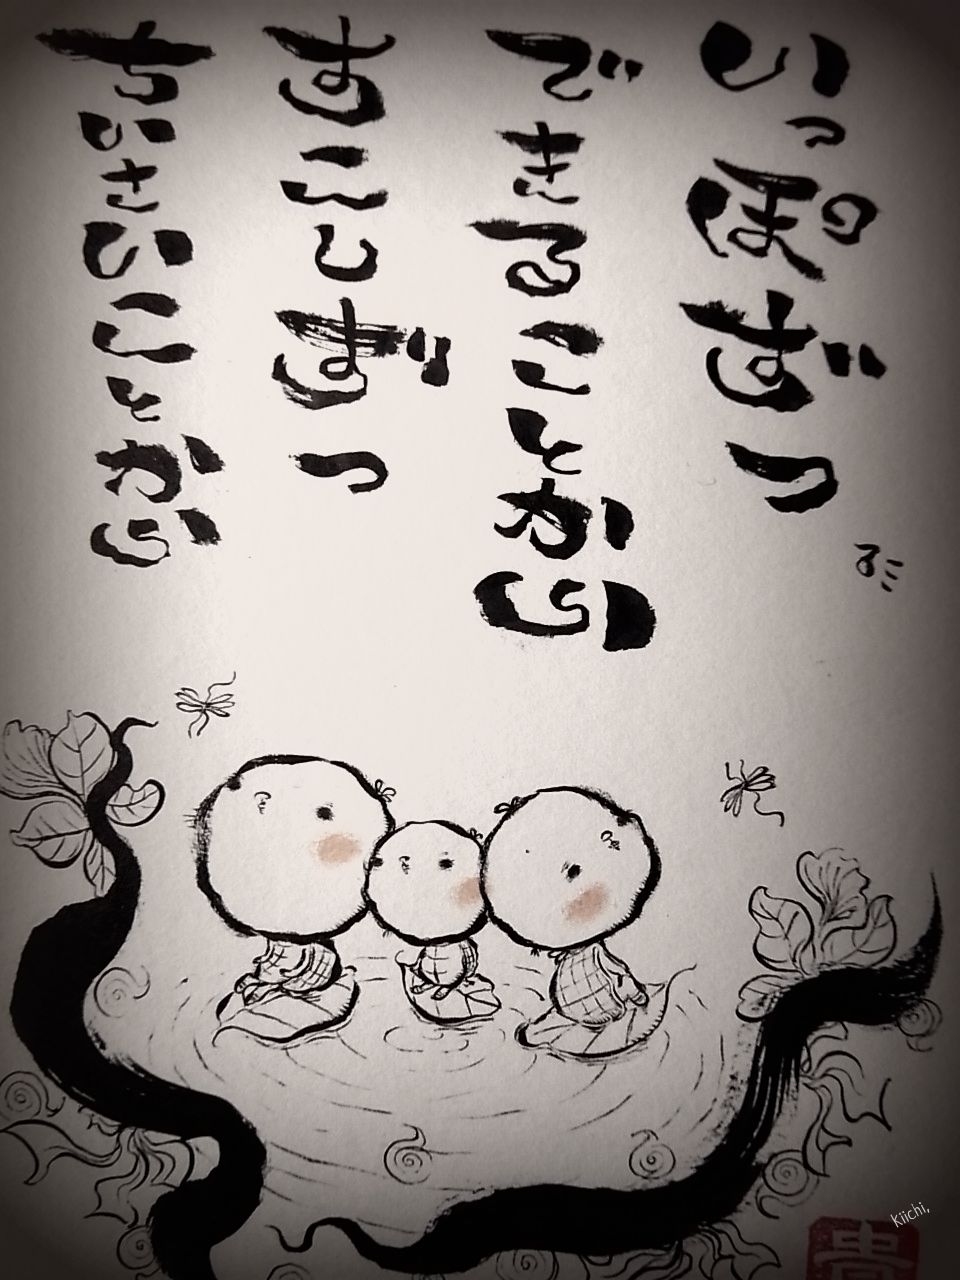 いっぽずつ
できることから
すこしずつ
ちいさいことから
るミ
Kiichi,
貴